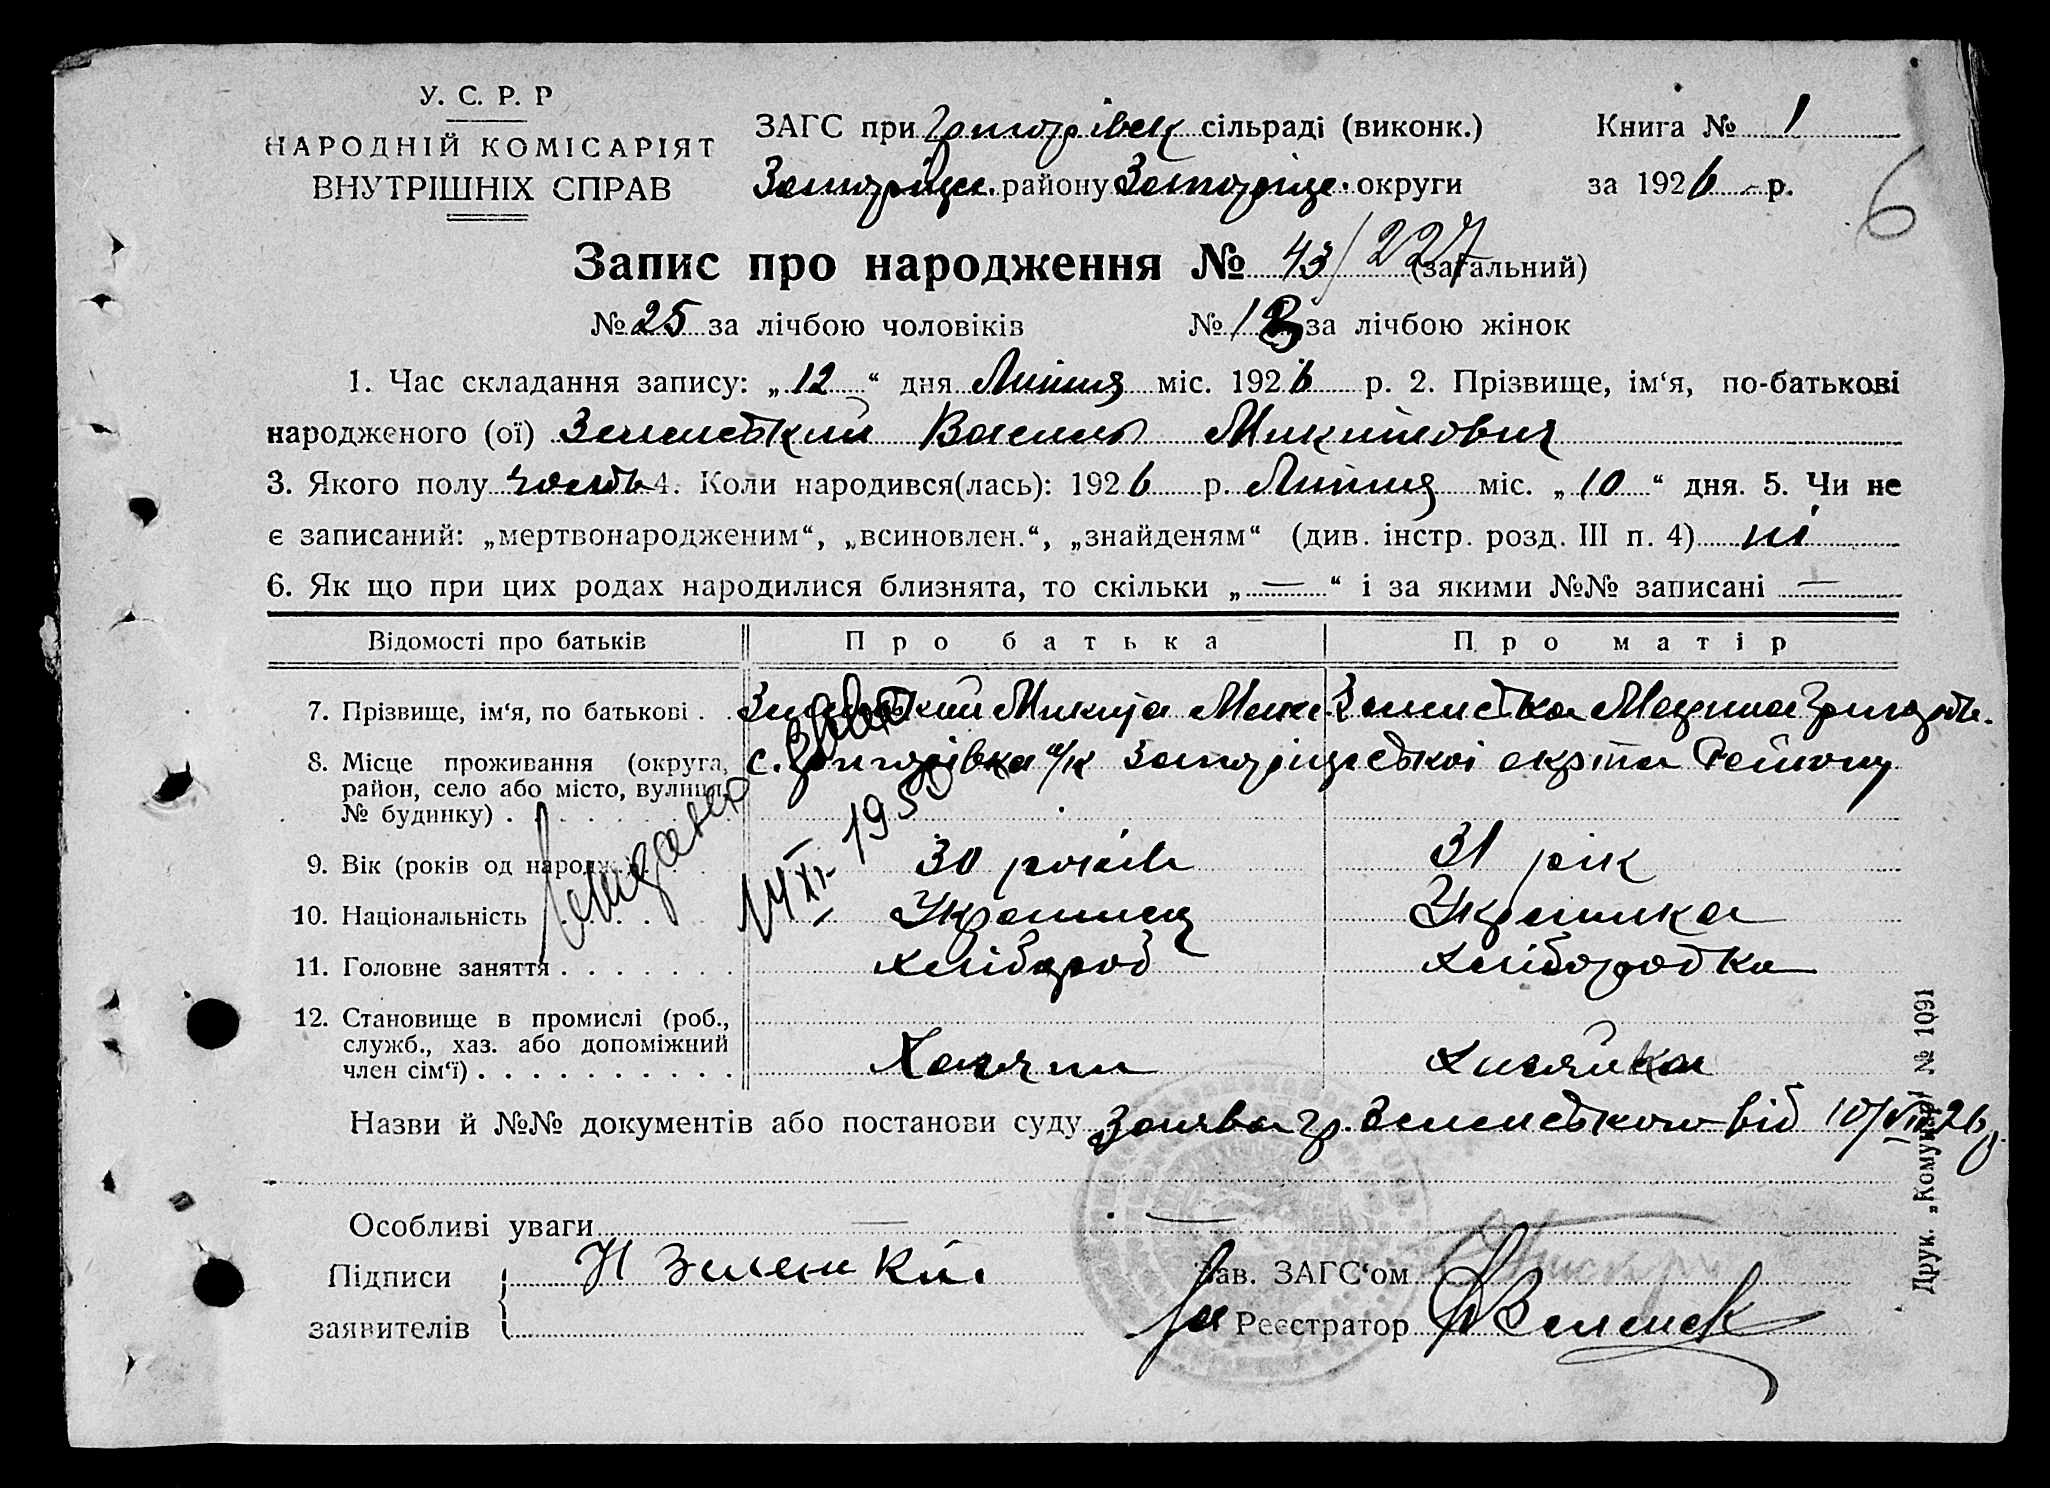 У. С. Р. Р
НАРОДНІЙ КОМІСАРІЯТ
ВНУТРІШНІХ СПРАВ
ЗАГС при Григорівск сільраді (виконк.)
Запоріжс. району Запоріжс. округи
Книга № 1
за 1926 р.
6
Запис про народження № 43/227 (загальний)
№ 25 за лічбою чоловіків № 18 за лічбою жінок
1. Час складання запису: „12“ дня Липня міс. 1926 р. 2. Прізвище, ім‘я, по-батькові
народженого (ої) Зеленський Василь Микитович
3. Якого полу чолов 4. Коли народився(лась): 1926 р. Липня міс. „10“ дня. 5. Чи не
є записаний: „мертвонародженим“, „всиновлен.“, „знайденям“ (див. інстр. розд. III п. 4) ні
6. Як що при цих родах народилися близнята, то скільки „—“ і за якими №№ записані —
Відомості про батьків Про батька Про матір
7. Прізвище, ім‘я, по батькові . . Зеленський Микита Зеленська
8. Місце проживання (округа, район, село або місто, вулиця, № будинку) . с. Григорівка Запоріжської округи Району
9. Вік (років од народж. 30 років 31 рік
10. Національність Українец Українка
11. Головне заняття . . . . . . . хлібороб хліборобка
12. Становище в промислі (роб., служб., хаз. або допоміжний член сім‘ї) . . . . . . . . . . . Хазяин хазяйка
14 XI- 195
Назви й №№ документів або постанови суду Заява гр. Зеленського від 10/VII 26 р.
Особливі уваги — —
Підписи
заявителів
Н Зеленский
Зав. ЗАГС‘ом
Реєстратор
Друк. „Комунар“ № 1091